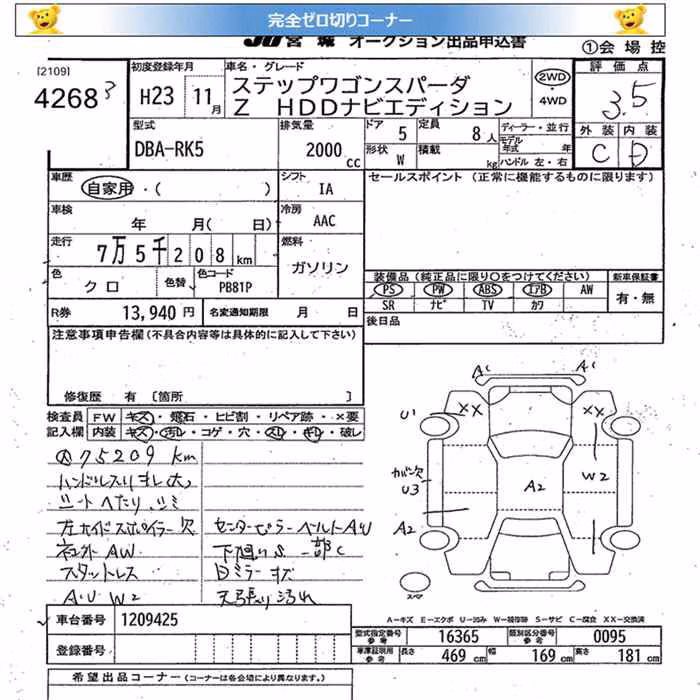 完全ゼロ切りコーナー
JU宮城 オークション出品申込書
①会場控
[2109]
4268 3
初度登録年月
H23 11月
車名・グレード
ステップワゴンスパーダ
Z HDDナビエディション
2WD
4WD
評価点
3.5
外装 内装
C D
型式
DBA-RK5
排気量
2000cc
ドア 5
定員 8人
形状 W
積載 kg
ディーラー・並行
モデル年式 年
ハンドル 左・右
車歴
自家用・( )
シフト
IA
セールスポイント (正常に機能するものに限ります)
車検
年 月( 日)
冷房
AAC
走行
7万5千208km
燃料
ガソリン
色
クロ
色替
色コード
PB81P
装備品(純正品に限り○をつけてください)
新車保証書
PS PW ABS エアB AW
SR ナビ TV カワ
有・無
R券 13,940円
名変通知期限 月 日
後日品
注意事項申告欄(不具合内容等は具体的に記入して下さい)
修復歴 有 [箇所 ]
検査員記入欄
FW キズ・飛石・ヒビ割・リペア跡・×要
内装 キズ・汚レ・コゲ・穴・スレ・ギレ・破レ
75209 km
ハンドルスリ キレ(大)
シートへたり、シミ
左サイドスポイラー 欠
ネジ外 AW
スタットレス
A・U W2
センターピラーベルトAU
下廻りS 一部C
Dミラーキズ
天張り汚れ
A1 A1
U1 XX XX
カバー欠
U3
A2
A2
W2
スマ
A-キズ E-エクボ U-凹み W-補修跡 S-サビ C-腐食 XX-交換済
車台番号 1209425
登録番号
型式指定番号 参考 16365
類別区分番号 参考 0095
車庫証明用 参考
長さ 469cm
幅 169cm
高さ 181cm
希望出品コーナー(コーナーは各会場により異なります。)